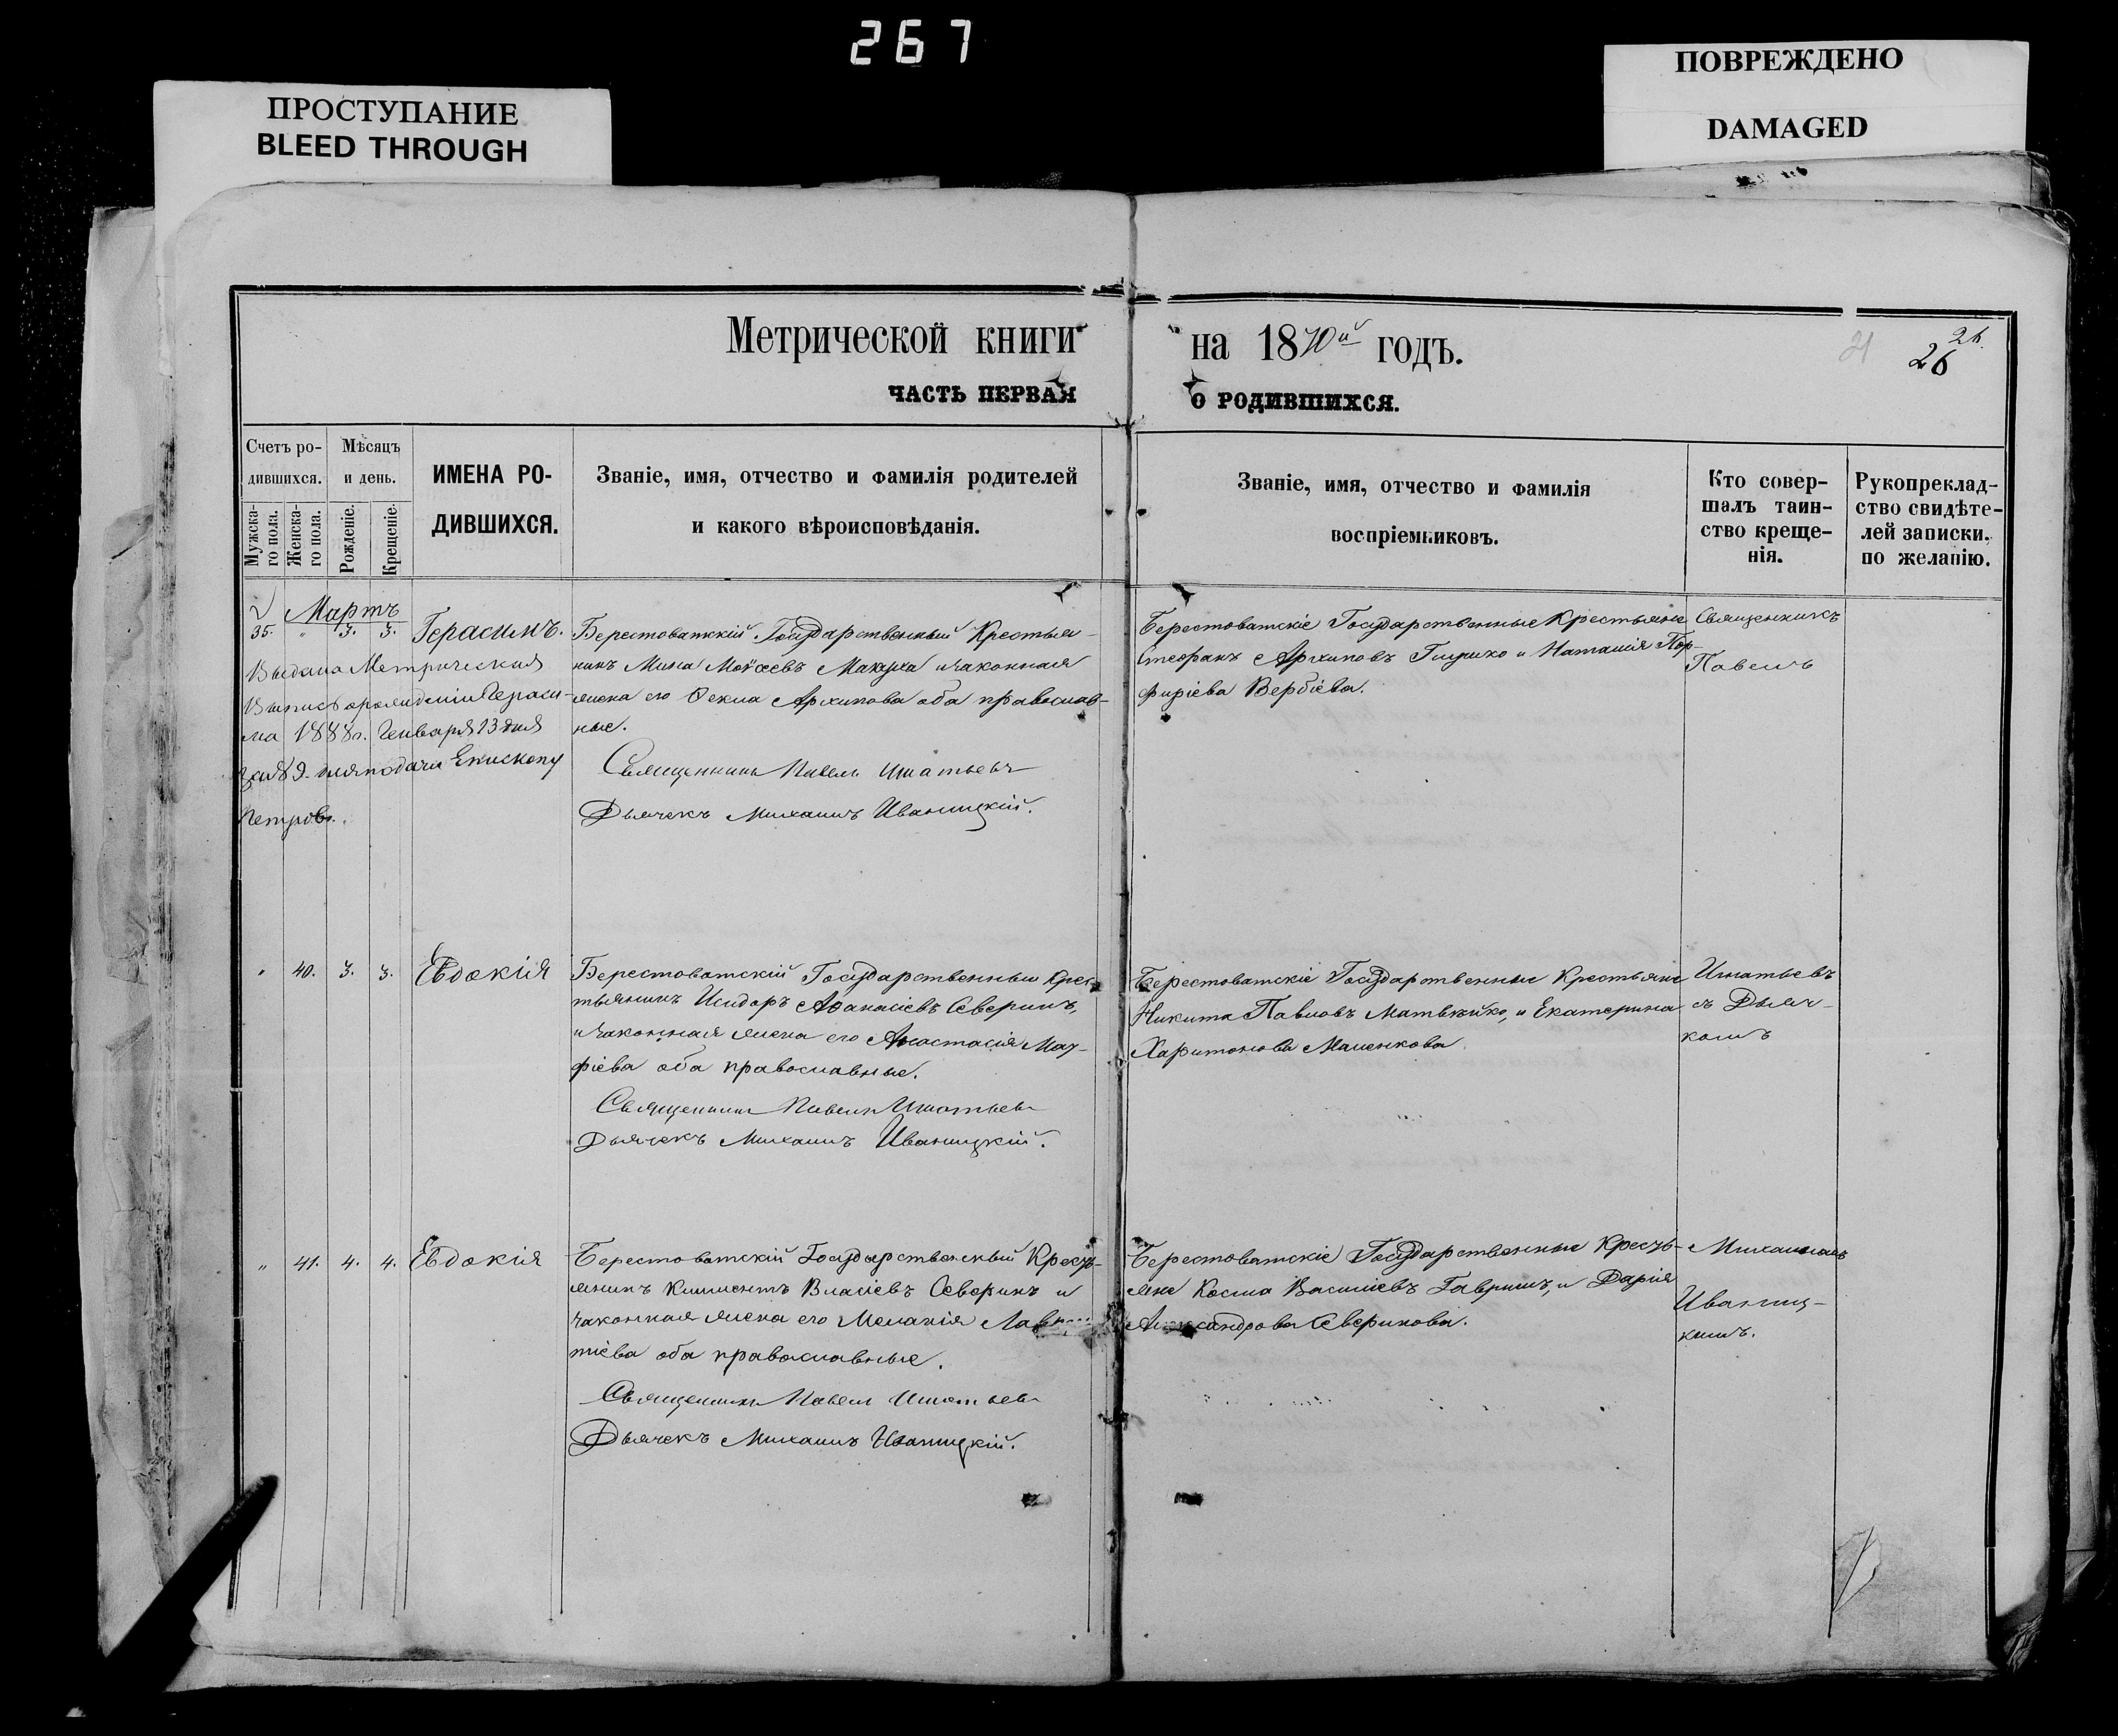 267
ПРОСТУПАНИЕ
BLEED THROUGH
ПОВРЕЖДЕНО
DAMAGED
Метрической книги
на 1870й годъ.
26
ЧАСТЬ ПЕРВАЯ
О РОДИВШИХСЯ.
Счетъ ро-
дившихся.
Мужска-
го пола.
Женска-
го пола.
Мѣсяцъ
и день.
Рожденіе.
Крещеніе.
ИМЕНА РО-
ДИВШИХСЯ.
Званіе, имя, отчество и фамилія родителей
и какого вѣроисповѣданія.
Званіе, имя, отчество и фамилія
воспріемниковъ.
Кто совер-
шалъ таин-
ство креще-
нія.
Рукопреклад-
ство свидѣте-
лей записки,
по желанію.
Мартъ
35. " 3. 3.
Герасимъ.
Выдана Метрическая
Выпись о рожденіи Гераси-
ма 1888г. Генваря 13 дня
за № 9. для подачи Епископу
Петров.
Берестоватскій Государственный Крестья-
нинъ Мина Моѵсеевъ Макуха и законная
жена его Ѳекла Архипова оба православ-
ные.
Священникъ Павелъ Игнатьевъ
Дьячекъ Михаилъ Иваницкій.
Берестоватскіе Государственные Крестьяне
Стефанъ Архиповъ Глушко и Наталія Пор-
фиріева Вербіева.
Священникъ
Павелъ
" 40. 3. 3.
Евдокія
Берестоватскій Государственный Крес-
тьянинъ Исидоръ Аѳанасіевъ Северинъ,
и законная жена его Анастасія Мат-
фіева оба православные.
Священникъ Павелъ Игнатьевъ
Дьячекъ Михаилъ Иваницкій.
Берестоватскіе Государственные Крестьяне
Никита Павловъ Матвѣйко, и Екатерина
Харитонова Маленкова
Игнатьевъ
съ Дьяч-
комъ
" 41. 4. 4.
Евдокія
Берестоватскій Государственный Кресть-
янинъ Климентъ Власіевъ Северинъ и
законная жена его Меланія
тіева оба православные.
Священникъ Павелъ Игнатьевъ
Дьячекъ Михаилъ Иваницкій.
Берестоватскіе Государственные Кресть-
яне Косма Василіевъ Гавришъ, и Дарія
Александрова Северинова.
Михаиломъ
Иваниц-
кимъ.